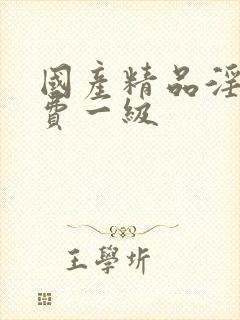 國産精品淫
費一級
王學圻